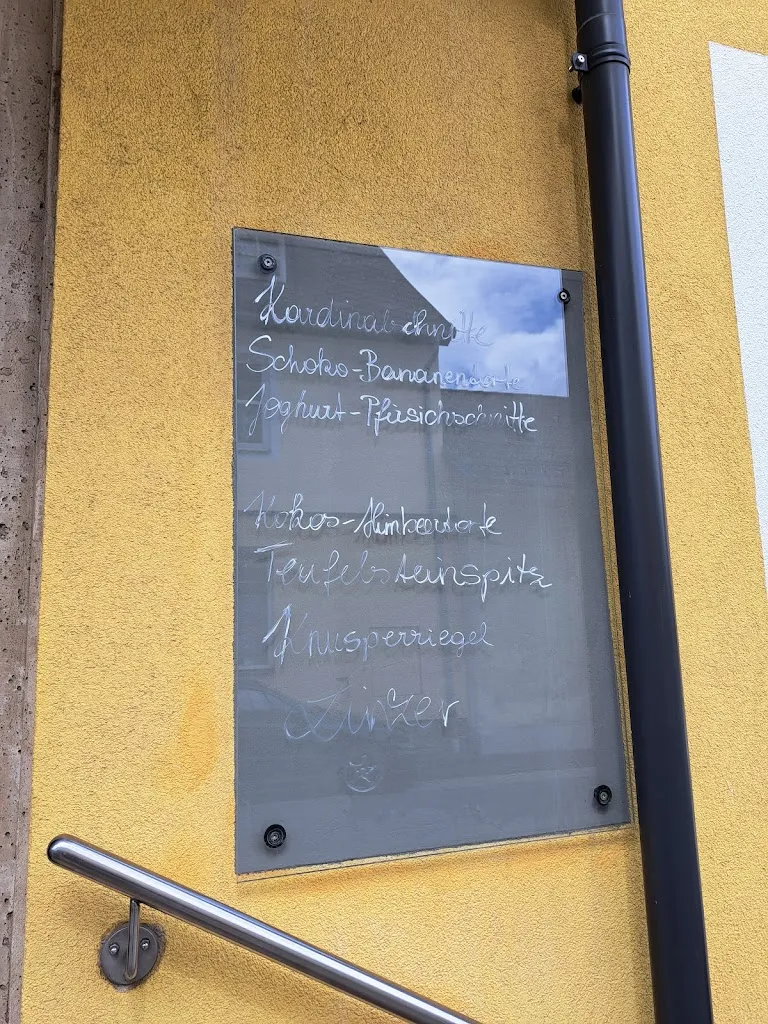 Kardinalschnitte
Schoko-Bananentorte
Joghurt-Pfirsichschnitte
Kokos-Himbeertorte
Teufelsteinspitz
Knusperriegel
Linzer